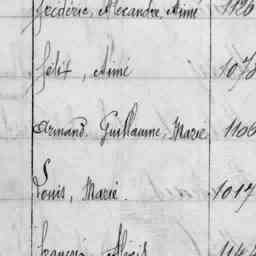 Frédéric, Alexandre, Aimé 1126
Félix, Aimé 1078
Armand, Guillaume, Marie 1106
Louis, Marie. 1017
François, Alexis